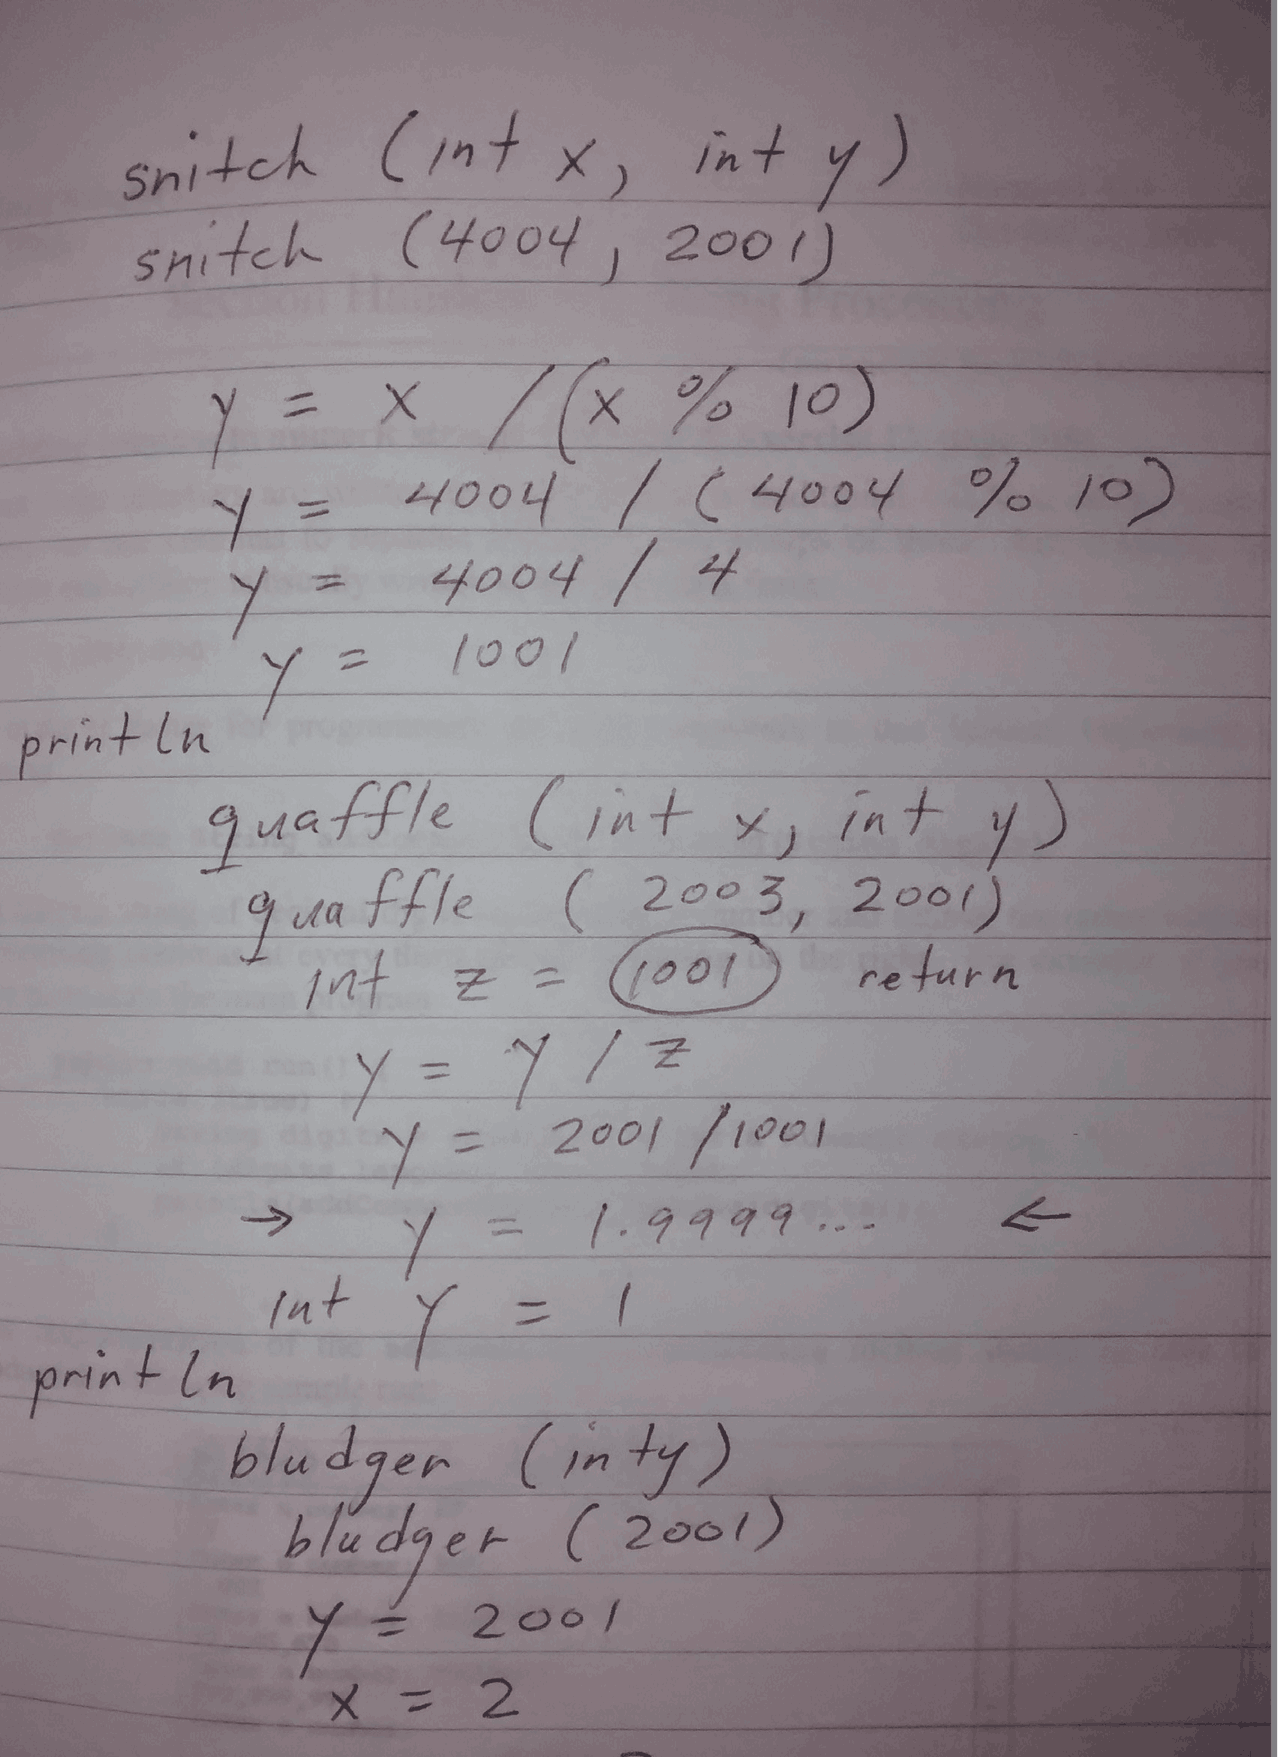 snitch (int x, int y)
snitch (4004, 2001)
y = x / (x % 10)
y = 4004 / (4004 % 10)
y = 4004 / 4
y = 1001
println
quaffle (int x, int y)
quaffle (2003, 2001)
int z = 1001 return
y = y / z
y = 2001 / 1001
→ y = 1.9999... ←
int y = 1
println
bludger (int y)
bludger (2001)
y = 2001
x = 2